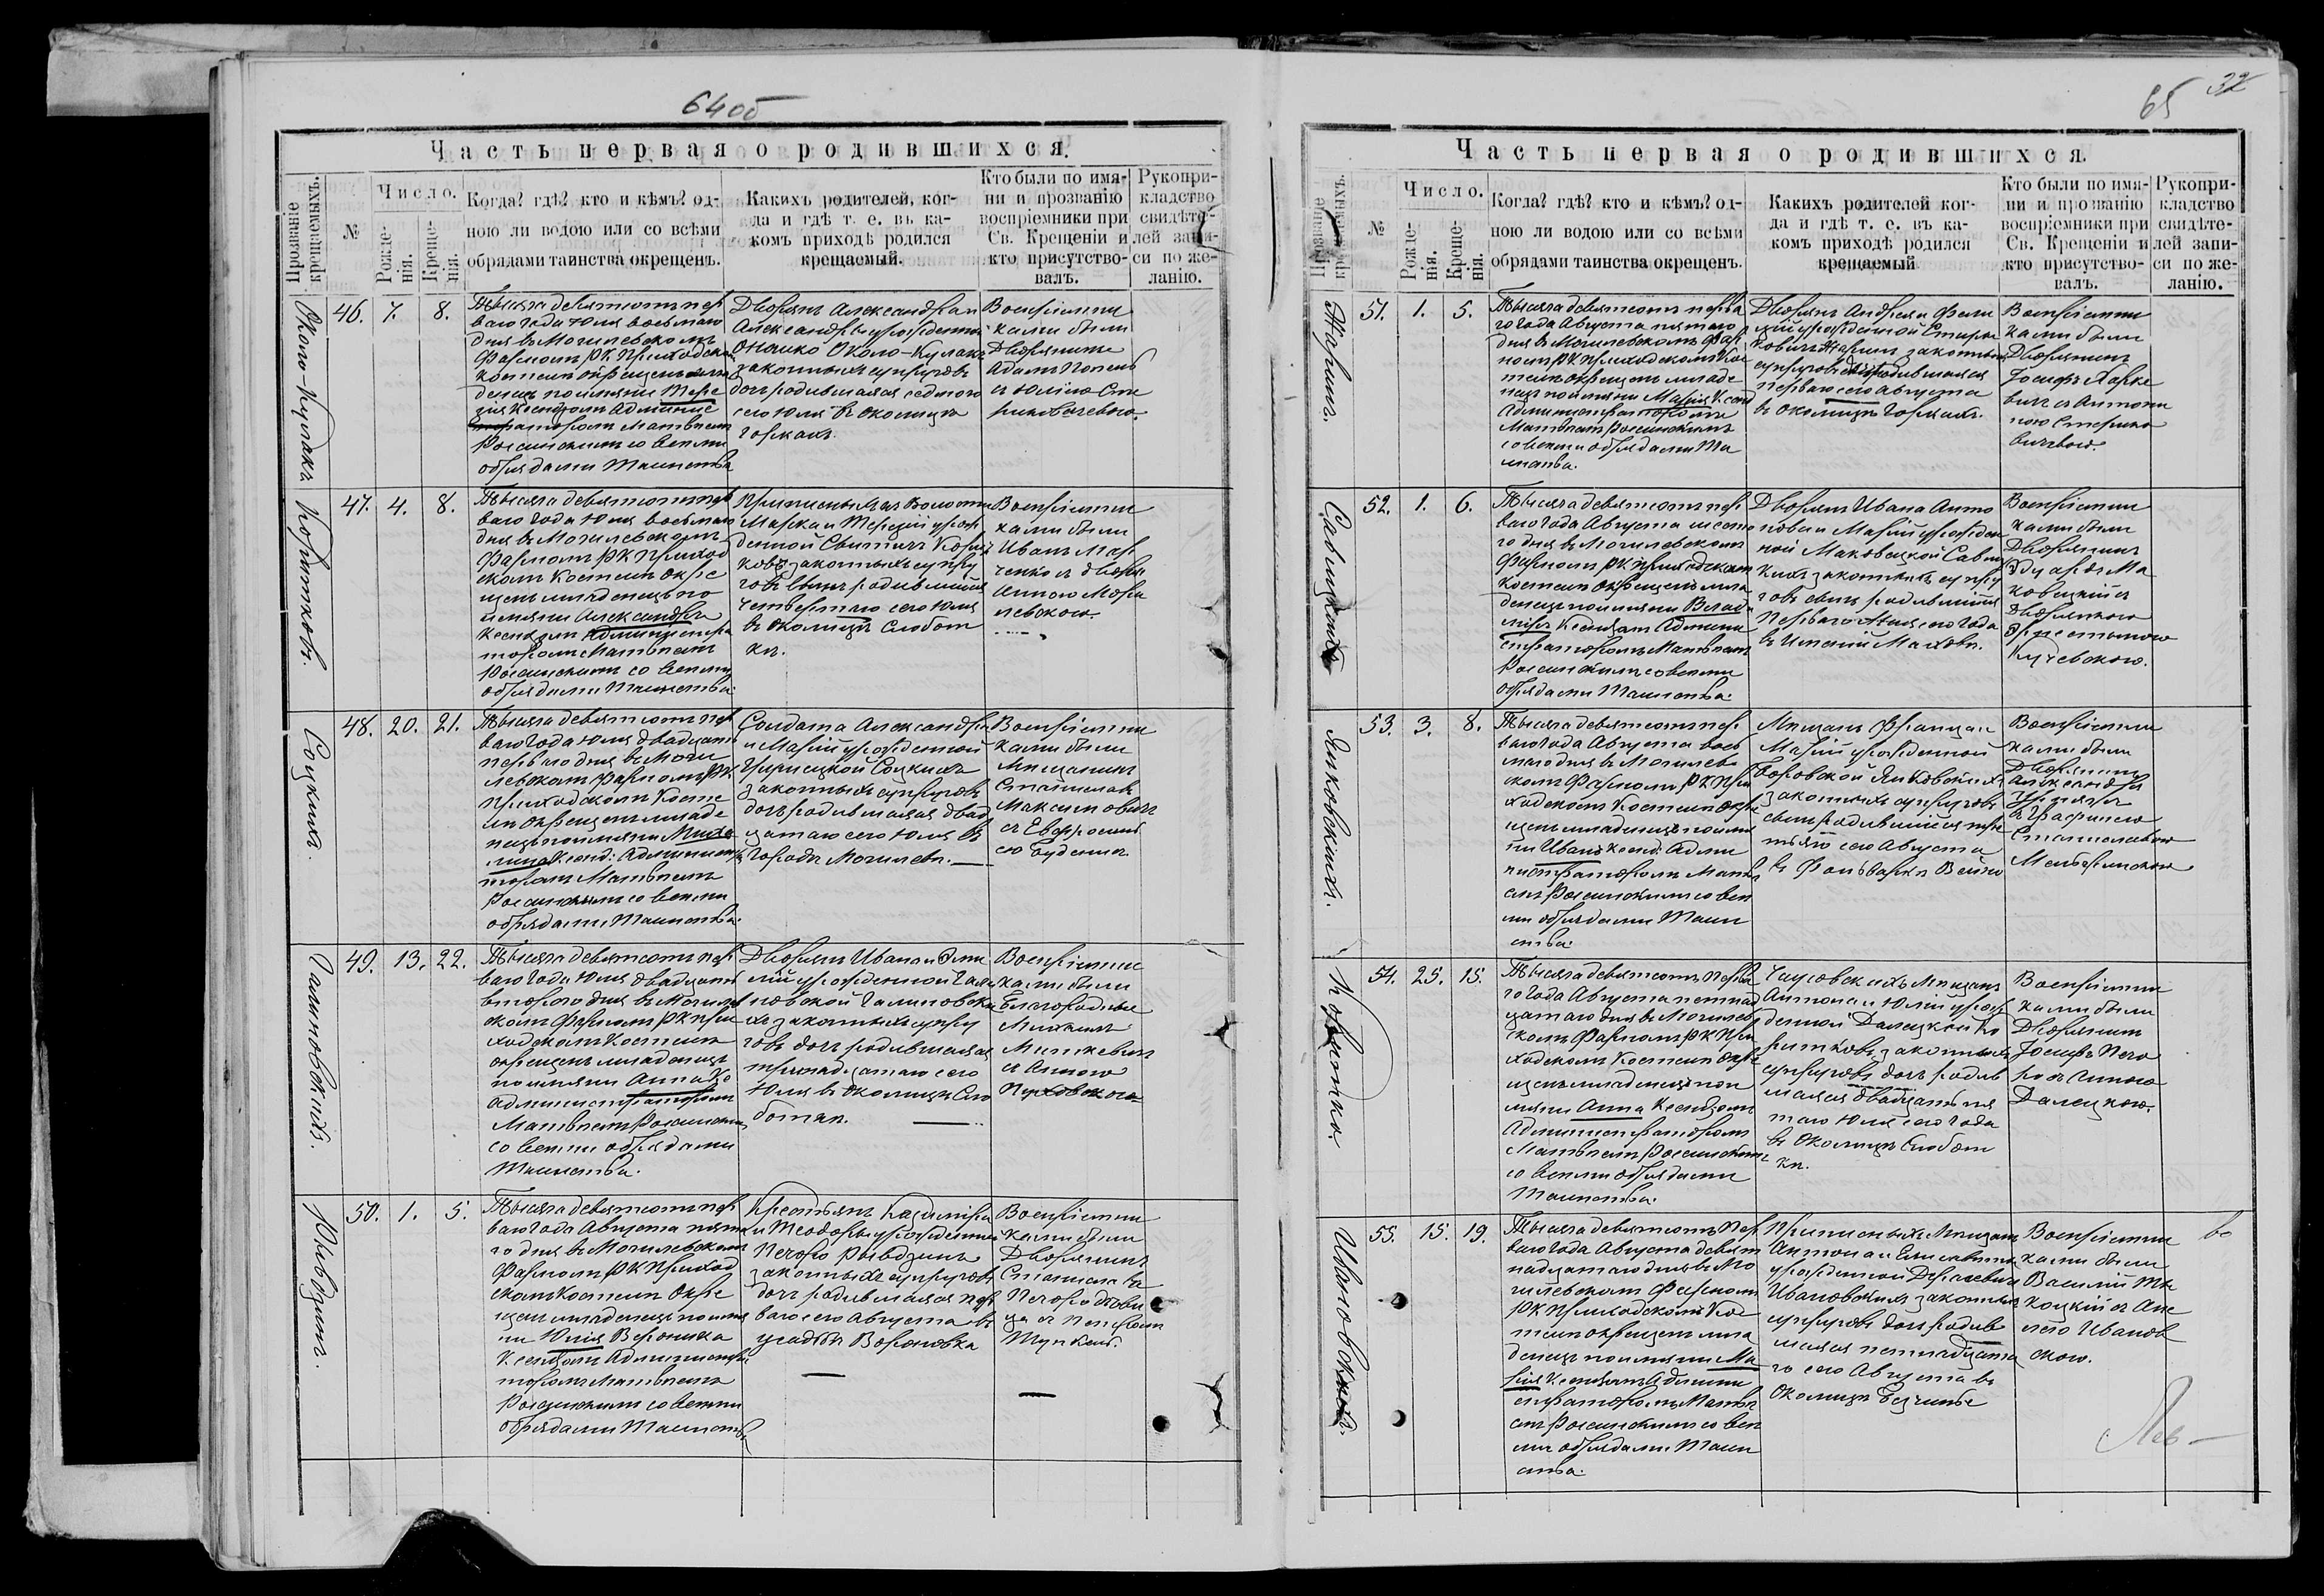 64об
Часть первая о родившихся.
Прозваніе крещаемыхъ.
№
Число.
Рожде-
нія.
Креще-
нія.
Когда? гдѣ? кто и кѣмъ? од-
ною ли водою или со всѣми
обрядами таинства окрещенъ.
Какихъ родителей, ког-
да и гдѣ т. е. въ ка-
комъ приходѣ родился
крещаемый.
Кто были по имя-
ни и прозванію
воспріемники при
Св. Крещеніи и
кто присутство-
валъ.
Рукопри-
кладство
свидѣте-
лей запи-
си по же-
ланію.
Около-Кулакъ
46. 7. 8.
Тысяча девятсотъ пер
ваго года Юля восьмаго
дня въ Могилевскомъ
Фарномъ РК Приходском
костелѣ окрещенъ мла
денецъ поимяни Тере
зія Ксендзомъ Админис
траторомъ Матвѣемъ
со всѣми
обрядами Таинства
Дворянъ Александра и
Александры урожденной
Около-Кулакъ
законныхъ супруговъ
дочь родившаяся седмого
сего Юля въ Околицѣ
Горкахъ.
Воспріемни
ками были
Дворянинъ
Адамъ
съ Юліею Сте
риковичевою.
Корытковъ.
47. 4. 8.
Тысяча девятсотъ пер
ваго года Юля восьмаго
дня въ Могилевскомъ
Фарномъ РК Приход
скомъ Костелѣ окре
щенъ младенецъ по
имяни Александръ
Ксендзомъ Администра
торомъ Матвѣемъ
со всѣми
обрядами Таинства.
Марка и Терезіи урож
денной Свитичъ Корыт
ковъ законныхъ супру
говъ сынъ родившійся
четвертаго сего Юля
въ околицѣ Слобот
кѣ.
Воспріемни
ками были
Иванъ Мар
ченко съ дворян
Анною Мора
левскою.
Соцкихъ.
48. 20. 21.
Тысяча девятсотъ пер
ваго года Юля двадцать
перваго дня въ Моги
левскомъ Фарномъ РК
Приходскомъ Косте
лѣ окрещенъ младе
нецъ поимяни Миха
лина Ксенд: Админист
торомъ Матвѣемъ
со всѣми
обрядами Таинства.
Солдата Александра
и Маріи урожденной
Соцкихъ
законныхъ супруговъ
дочь родившаяся двад
цатаго сего Юля въ
Городѣ Могилевѣ.
Воспріемни
ками были
Мѣщанинъ
Станиславъ
Максимовичъ
съ Ефросинь
ею
Галиновскихъ.
49. 13. 22.
Тысяча девятсотъ пер
ваго года Юля двадцать
второго дня въ Могилев
скомъ Фарномъ РК При
ходскомъ Костелѣ
окрещенъ младенецъ
поимяни Анна Кс
Администраторомъ
Матвѣемъ
со всѣми обрядами
Таинства.
Дворянъ Ивана и Эми
ліи урожденной Гали
новской Галиновски
хъ законныхъ супру
говъ дочь родившаяся
тринадцатаго сего
Юля въ Околицѣ Сло
боткѣ.
Воспріемни
ками были
Благородные
Михаилъ
Мицкевичъ
съ Анною
Пуховскою
Рывдзинъ.
50. 1. 5.
Тысяча девятсотъ пер
ваго года Августа пята
го дня въ Могилевском
Фарномъ РК Приход
скомъ Костелѣ Окре
щенъ младенецъ поимя
ни Юлія Вероника
Ксендзомъ Админист
торомъ Матвѣемъ
со всѣми
обрядами Таинств
Крестьянъ Казимира
и Теодоры урожденной
Печоро Рывдзинъ
законныхъ супруговъ
дочь родившаяся пер
ваго сего Августа въ
усадьбѣ Вороновка
Воспріемни
ками были
Дворянинъ
Станиславъ
Печоро
65 32
Часть первая о родившихся.
Прозваніе крещаемыхъ.
№
Число.
Рожде-
нія.
Креще-
нія.
Когда? гдѣ? кто и кѣмъ? од-
ною ли водою или со всѣми
обрядами таинства окрещенъ.
Какихъ родителей ког-
да и гдѣ т. е. въ ка-
комъ приходѣ родился
крещаемый
Кто были по имя-
ни и прозванію
воспріемники при
Св. Крещеніи и
кто присутство-
валъ.
Рукопри-
кладство
свидѣте-
лей запи-
си по же-
ланію.
Жаринъ.
51. 1. 5.
Тысяча девятсотъ перва
го года Августа пятаго
дня въ Могилевскомъ Фар
номъ РК Приходскомъ Кос
телѣ окрещенъ младе
нецъ поимяни Марія Ксенд
Администраторомъ
Матвѣемъ
со всѣми обрядами Та
инства.
Дворянъ Андрея и Фели
ціи урожденной Стери
ковичъ Жаринъ законных
супруговъ дочь родившаяся
перваго сего Августа
въ околицѣ Горкахъ.
Воспріемни
ками были
Дворянинъ
Іосифъ Харке
вичъ съ Антони
ною Стерико
вичевою.
Савицкихъ
52. 1. 6.
Тысяча девятсотъ пер
ваго года Августа шесто
го дня въ Могилевскомъ
Фарномъ РК Приходскомъ
Костелѣ окрещенъ мла
денецъ поимяни Влади
міръ Ксендзомъ Админи
страторомъ Матвѣемъ
со всѣми
обрядами Таинства.
Дворянъ Ивана Анто
нова и Маріи урожден
ной Маковецкой Савиц
кихъ законныхъ супру
говъ сынъ родившійся
Перваго Юля сего года
въ Имѣніи Маховѣ.
Воспріемни
ками были
Дворянинъ
Эдуардъ Ма
ковецкій съ
Дворянкою
Эрнестиною
Кучевскою.
Янковскихъ.
53. 3. 8.
Тысяча девятсотъ пер
ваго года Августа вось
маго дня въ Могилев
скомъ Фарномъ РК При
ходскомъ Костелѣ окре
щенъ младенецъ поимя
ни Иванъ Ксенд: Адми
нистраторомъ Матвѣ
емъ со всѣ
ми обрядами Таин
ства.
Мѣщанъ Франца и
Маріи урожденной
Боровской Янковскихъ
законныхъ супруговъ
сынъ родившійся тре
тьяго сего Августа
въ Фольваркѣ
Воспріемни
ками были
Дворянинъ
Александръ
Станиславою
Корытко.
54. 25. 15.
Тысяча девятсотъ перва
го года Августа пятнад
цатаго дня въ Могилев
скомъ Фарномъ РК При
ходскомъ Костелѣ окре
щенъ младенецъ пои
мяни Анна Ксендзомъ
Администраторомъ
Матвѣемъ
со всѣми обрядами
Таинства.
Чаусовскихъ Мѣщанъ
Антона и Юліи урож
денной Далецкой Ко
рытковъ законныхъ
супруговъ дочь родив
шаяся двадцать пя
таго Юля сего года
въ Околицѣ Слобот
кѣ.
Воспріемни
ками были
Дворянинъ
Іосифъ Печо
ро съ
Далецкою.
Ивановскихъ.
55. 15. 19.
Тысяча девятсотъ пер
ваго года Августа девят
надцатаго дня въ Мо
гилевскомъ Фарномъ
РК Приходскомъ Кос
телѣ окрещенъ мла
денецъ поимяни Ма
рія Ксендзомъ Админи
страторомъ Матвѣ
емъ со всѣ
ми обрядами Таин
ства.
Мѣщанъ
Антона и Елисаветы
урожденной
Ивановскихъ законных
супруговъ дочь родив
шаяся пятнадцата
го сего Августа въ
Околицѣ
Воспріемни
ками были
Василій
съ Ане
лею Иванов
скою.